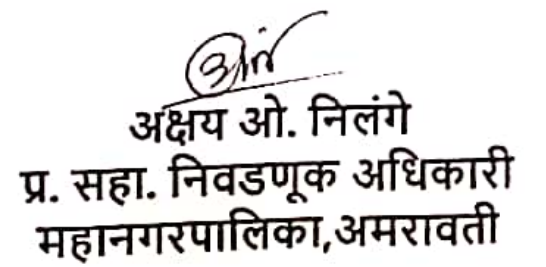 अक्षय ओ. निलंगे
प्र. सहा. निवडणूक अधिकारी
महानगरपालिका,अमरावती